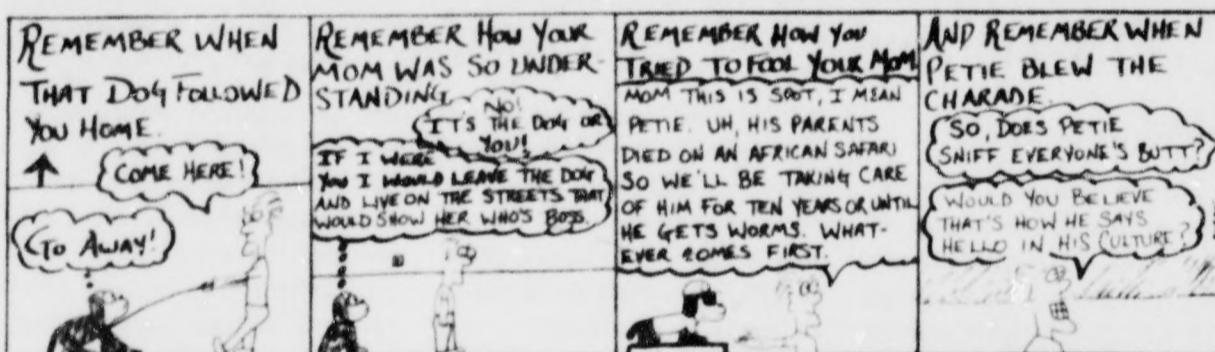 REMEMBER WHEN
THAT DOG FOLLOWED
YOU HOME.
COME HERE!
GO AWAY!
REMEMBER HOW YOUR
MOM WAS SO UNDER-
STANDING
NO!
IT'S THE DOG OR
YOU!
IF I WERE
YOU I WOULD LEAVE THE DOG
AND LIVE ON THE STREETS THAT
WOULD SHOW HER WHO'S BOSS.
REMEMBER HOW YOU
TRIED TO FOOL YOUR MOM.
MOM THIS IS SPOT, I MEAN
PETIE. UH, HIS PARENTS
DIED ON AN AFRICAN SAFARI
SO WE'LL BE TAKING CARE
OF HIM FOR TEN YEARS OR UNTIL
HE GETS WORMS. WHAT-
EVER COMES FIRST.
AND REMEMBER WHEN
PETIE BLEW THE
CHARADE.
SO, DOES PETIE
SNIFF EVERYONE'S BUTT?
WOULD YOU BELIEVE
THAT'S HOW HE SAYS
HELLO IN HIS CULTURE?